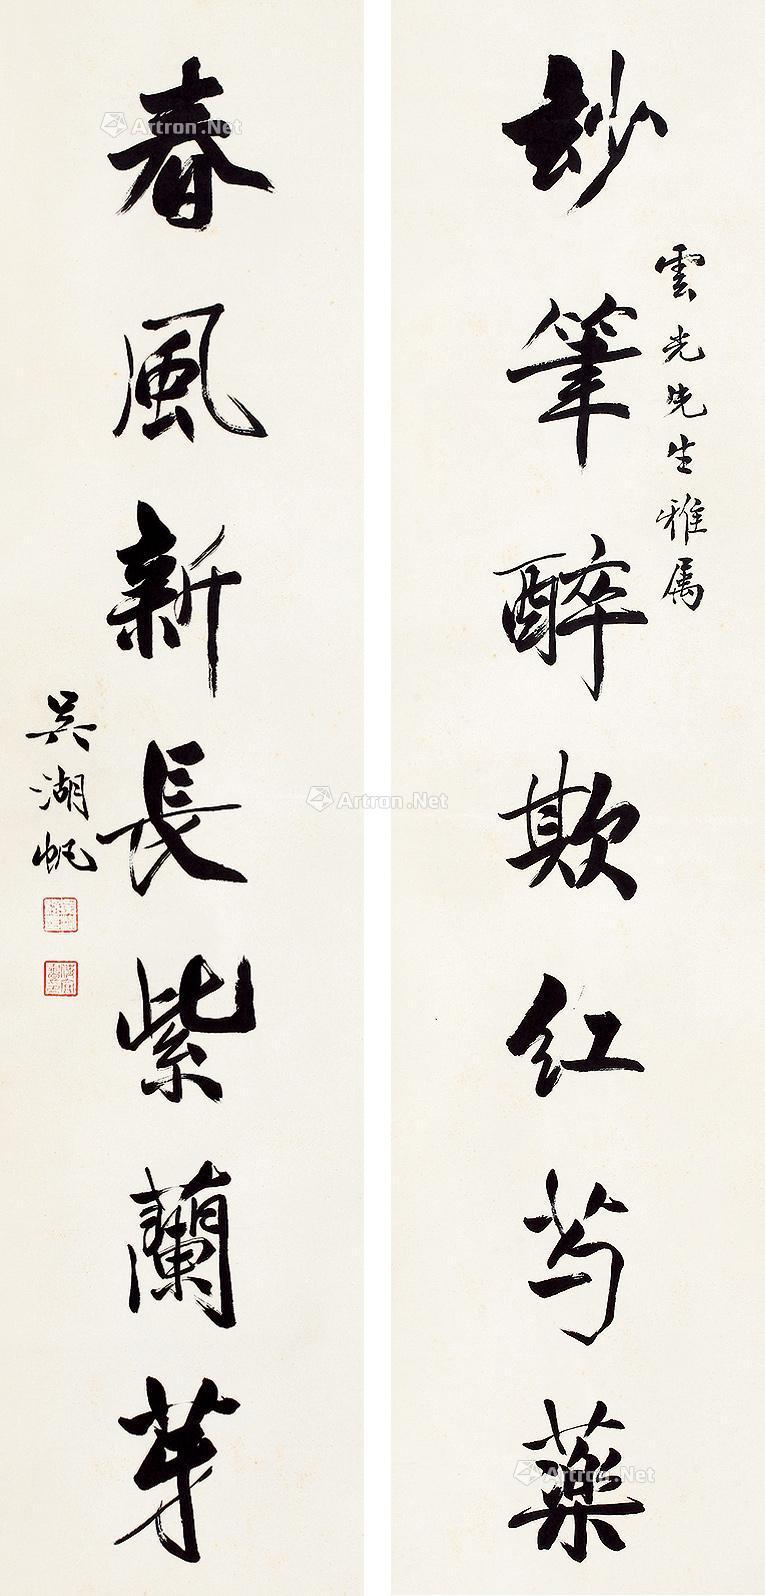 玅筆醉欺红芍藥
雲光先生雅属
春風新長紫蘭芽
吴湖帆
Artron.Net
Artron.Net
Artron.Net